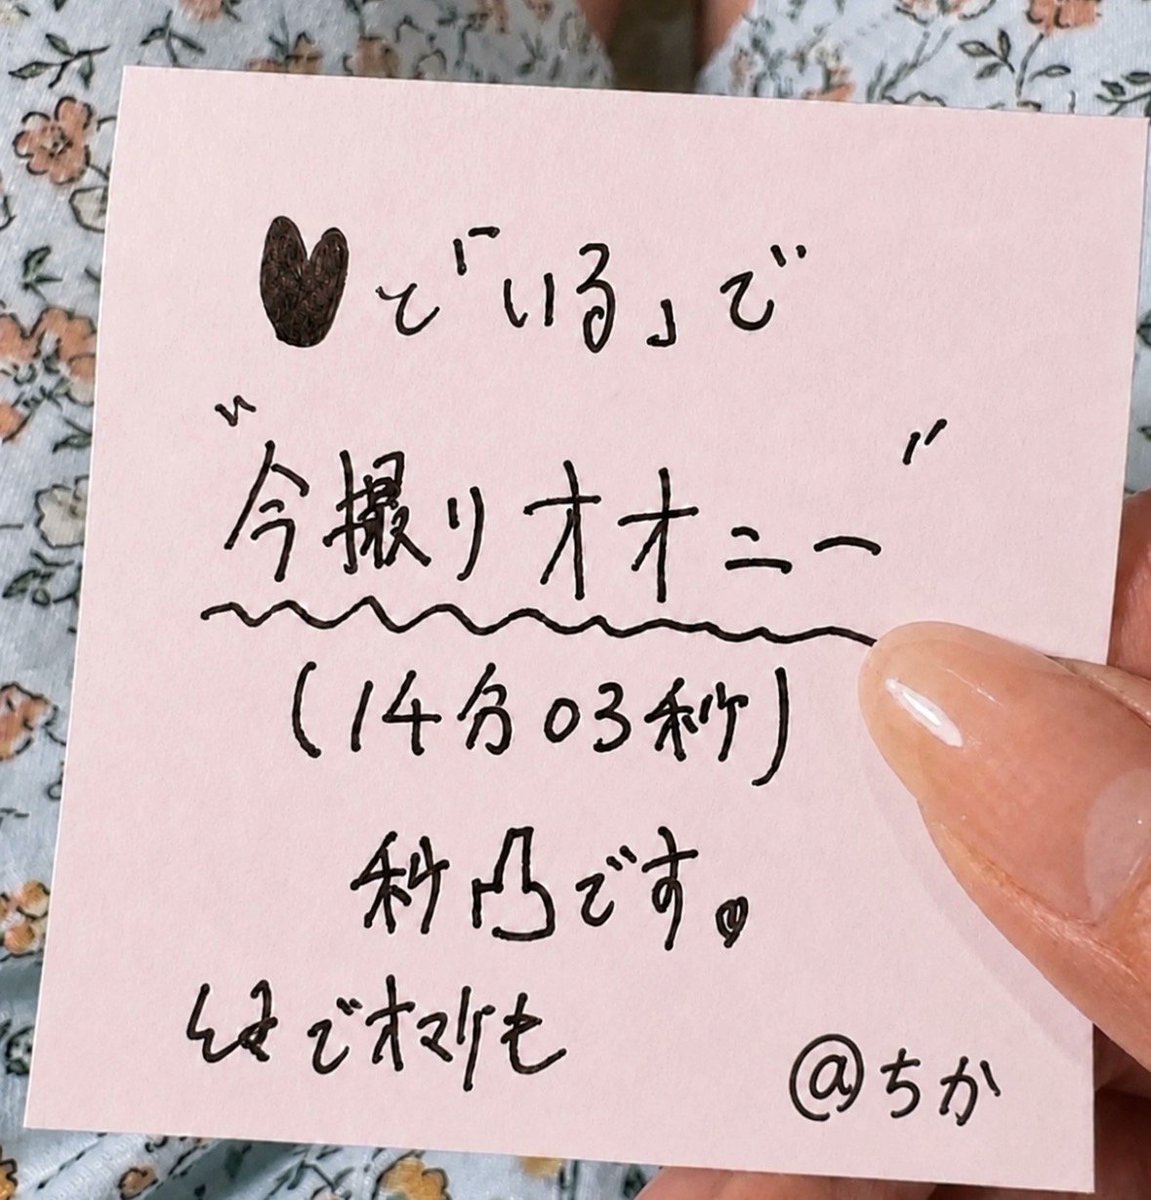 ♥と「いる」で
"今撮りオオニー"
(14分03秒)
秒凸です。
でオマケも
@ちか